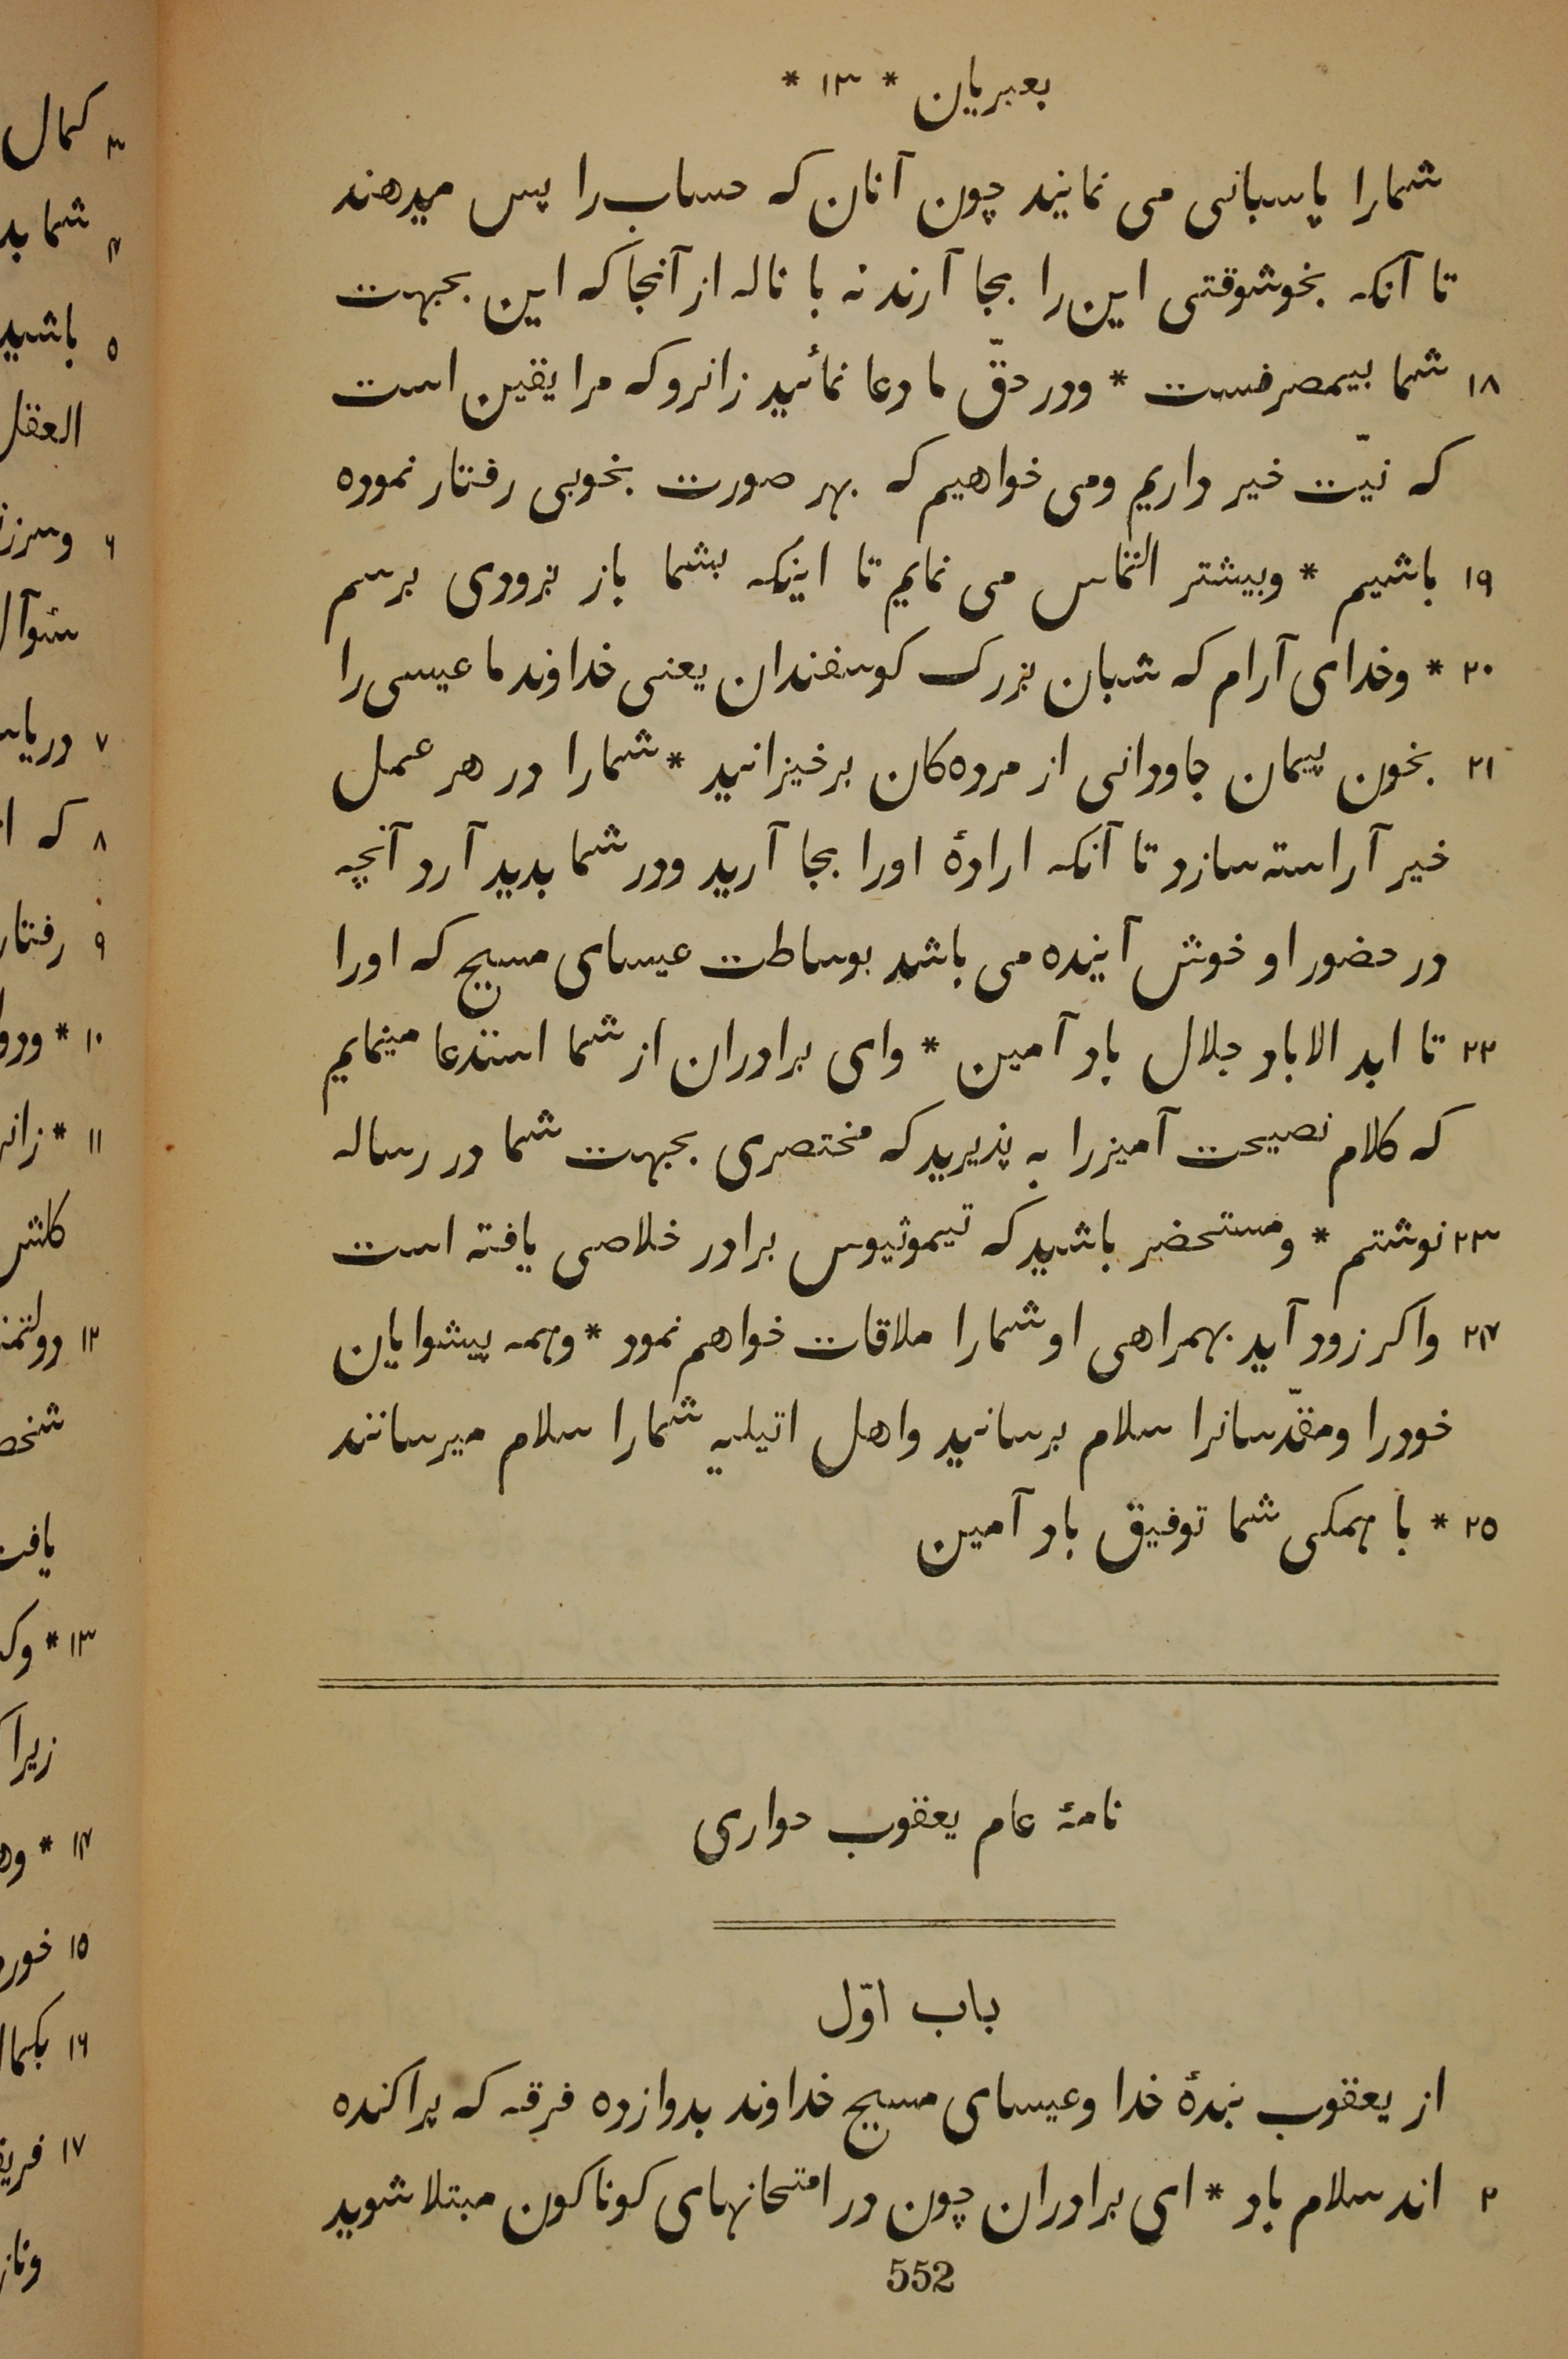 بعبریان * ۱۳ *
شمارا پاسبانی می نمایند چون آنان که حساب را پس میدهند
تا آنکه بخوشوقتی این را بجا آرند نه با ناله از آنجا که این بجهت
۱۸ شما بیمصرفست * ودر حقّ ما دعا نمائید زانرو که مرا یقین است
که نیّت خیر داریم ومی خواهیم که بهر صورت بخوبی رفتار نموده
۱۹ باشیم * وبیشتر التماس می نمایم تا اینکه بشما باز بزودی برسم
۲۰ * وخدای آرام که شبان بزرک کوسفندان یعنی خداوند ما عیسی را
۲۱ بخون پیمان جاودانی از مرده‌کان برخیزانید * شمارا در هر عمل
خیر آراسته سازد تا آنکه ارادهٔ اورا بجا آرید ودر شما بدید آرد آنچه
در حضور او خوش آینده می باشد بوساطت عیسای مسیح که اورا
۲۲ تا ابد الاباد جلال باد آمین * وای برادران از شما استدعا مینمایم
که کلام نصیحت آمیز را به پذیرید که مختصری بجهت شما در رساله
۲۳ نوشتم * ومستحضر باشید که تیموثیوس برادر خلاصی یافته است
۲۴ واکر زود آید بهمراهی او شمارا ملاقات خواهم نمود * وهمه پیشوایان
خودرا ومقدّسانرا سلام برسانید واهل اتیلیه شمارا سلام میرسانند
۲۵ * با همکی شما توفیق باد آمین
نامهٔ عام یعقوب حواری
باب اوّل
از یعقوب بندهٔ خدا وعیسای مسیح خداوند بدوازده فرقه که پراکنده
۲ اند سلام باد * ای برادران چون در امتحانهای کوناکون مبتلا شوید
552
۳ کمال
۴ شما بد
۵ باشید
العقل
۶
۷
۸ که
۹ رفتار
۱۰ *
۱۱ *
۱۲
۱۳ *
زیرا
۱۴ *
۱۵
۱۶
۱۷